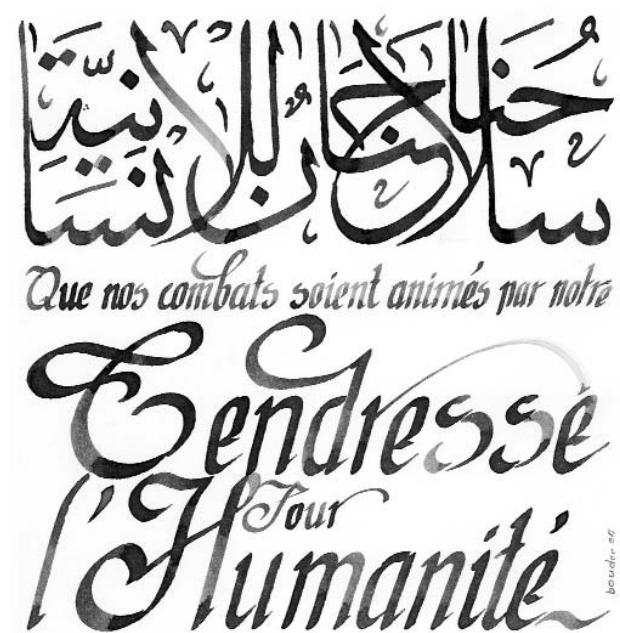 سلاحنا حنان للانسانيّة
Que nos combats soient animés par notre
Tendresse
Pour
l'Humanité
bouder